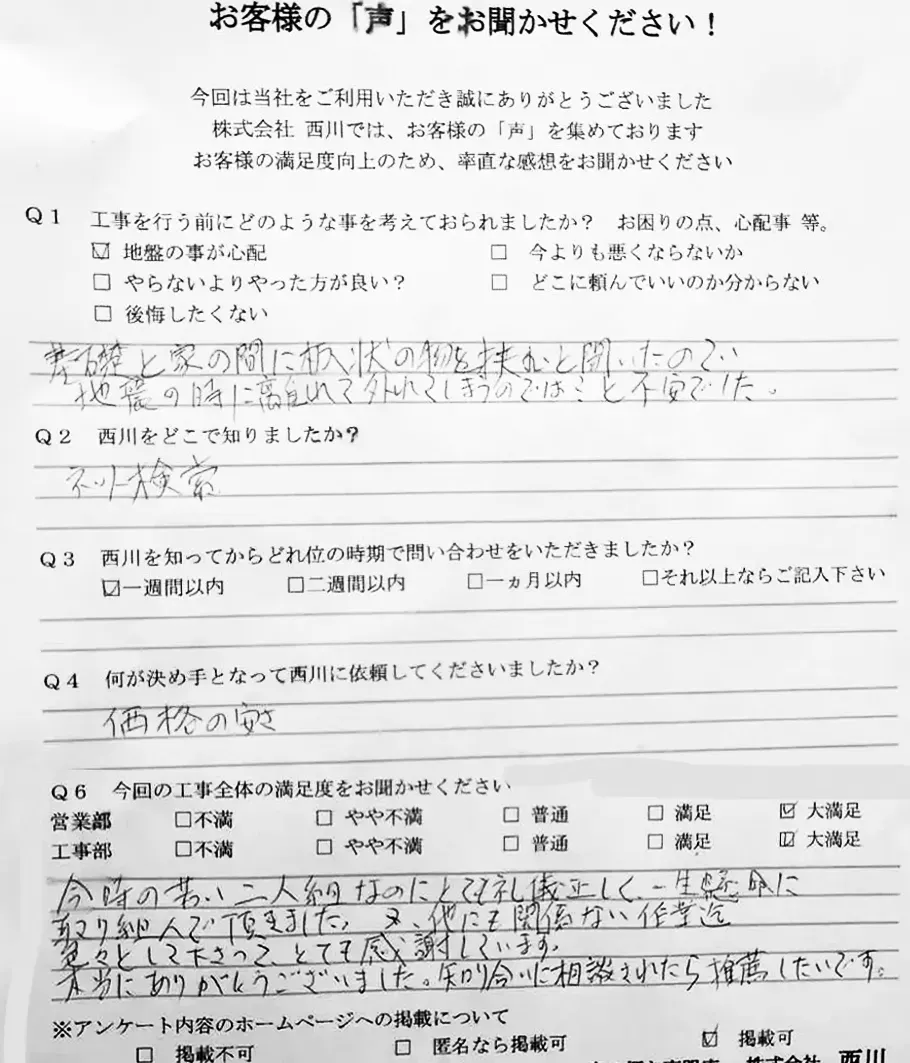 お客様の「声」をお聞かせください！
今回は当社をご利用いただき誠にありがとうございました
株式会社 西川では、お客様の「声」を集めております
お客様の満足度向上のため、率直な感想をお聞かせください
Q1 工事を行う前にどのような事を考えておられましたか？ お困りの点、心配事 等。
☑ 地盤の事が心配 □ 今よりも悪くならないか
□ やらないよりやった方が良い？ □ どこに頼んでいいのか分からない
□ 後悔したくない
基礎と家の間に板状の物を挟むと聞いたので
地震の時に離れて外れてしまうのでは…と不安でした。
Q2 西川をどこで知りましたか？
ネット検索
Q3 西川を知ってからどれ位の時期で問い合わせをいただきましたか？
☑一週間以内 □二週間以内 □一ヵ月以内 □それ以上ならご記入下さい
Q4 何が決め手となって西川に依頼してくださいましたか？
価格の安さ
Q6 今回の工事全体の満足度をお聞かせください
営業部 □不満 □ やや不満 □ 普通 □ 満足 ☑ 大満足
工事部 □不満 □ やや不満 □ 普通 □ 満足 ☑ 大満足
今時の若い二人組なのにとても礼儀正しく、一生懸命に
取り組んで頂きました。又、他にも関係ない作業迄
色々として下さって、とても感謝しています。
本当にありがとうございました。知り合いに相談されたら推薦したいです。
※アンケート内容のホームページへの掲載について
□ 掲載不可 □ 匿名なら掲載可 ☑ 掲載可
株式会社 西川